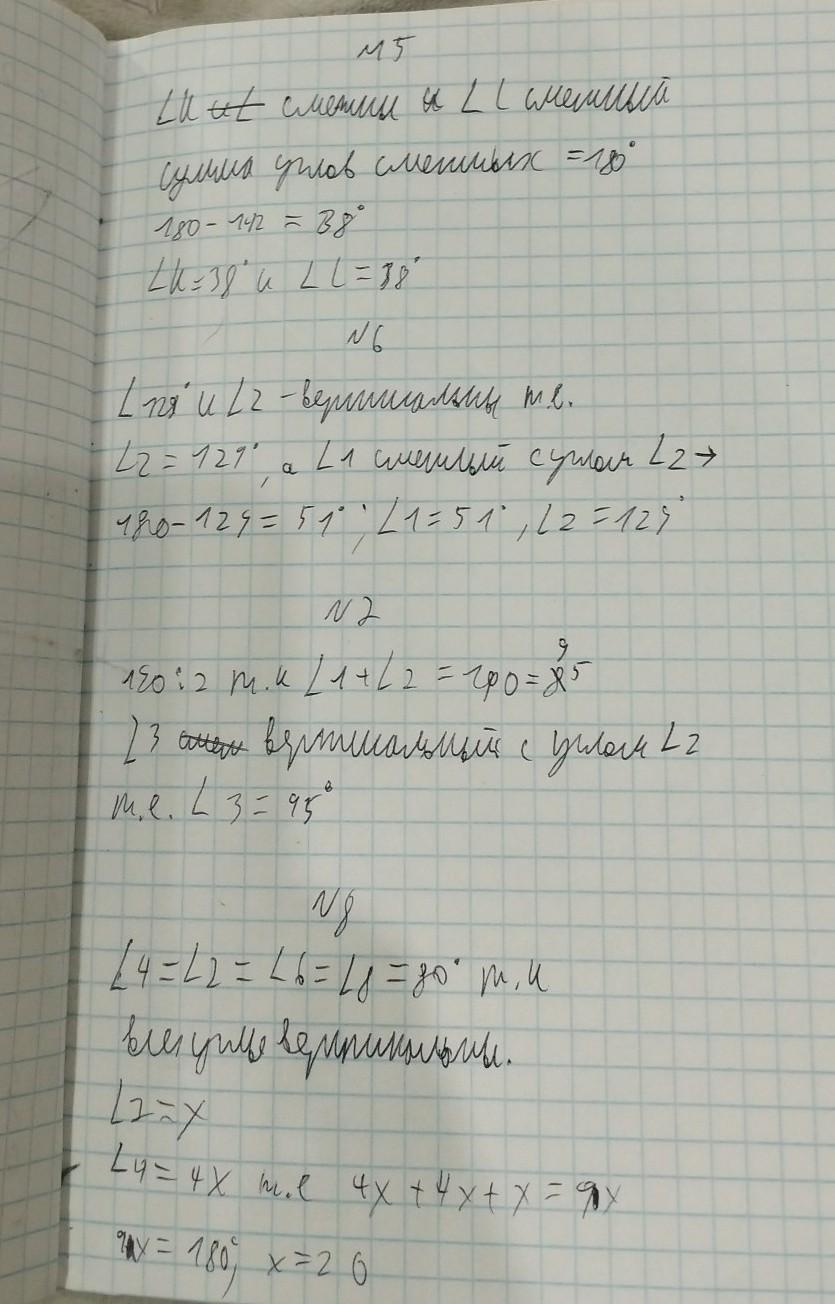 №5
∠K и L смежны и ∠L смежный
сумма углов смежных =180°
180-142 = 38°
∠K=38° и ∠L=38°
№6
∠129° и ∠2 -вертикальны т.е.
∠2=129°, а ∠1 смежный с углом ∠2→
180-129=51°; ∠1=51°, ∠2=129°
№7
190:2 т.к ∠1+∠2=190=95
∠3 вертикальный с углом ∠2
т.е. ∠3=95°
№8
∠4=∠2=∠6=∠8=80° т.к
все углы вертикальны.
∠2=x
∠4=4x т.е 4x+4x+x=9x
9x=180°, x=20